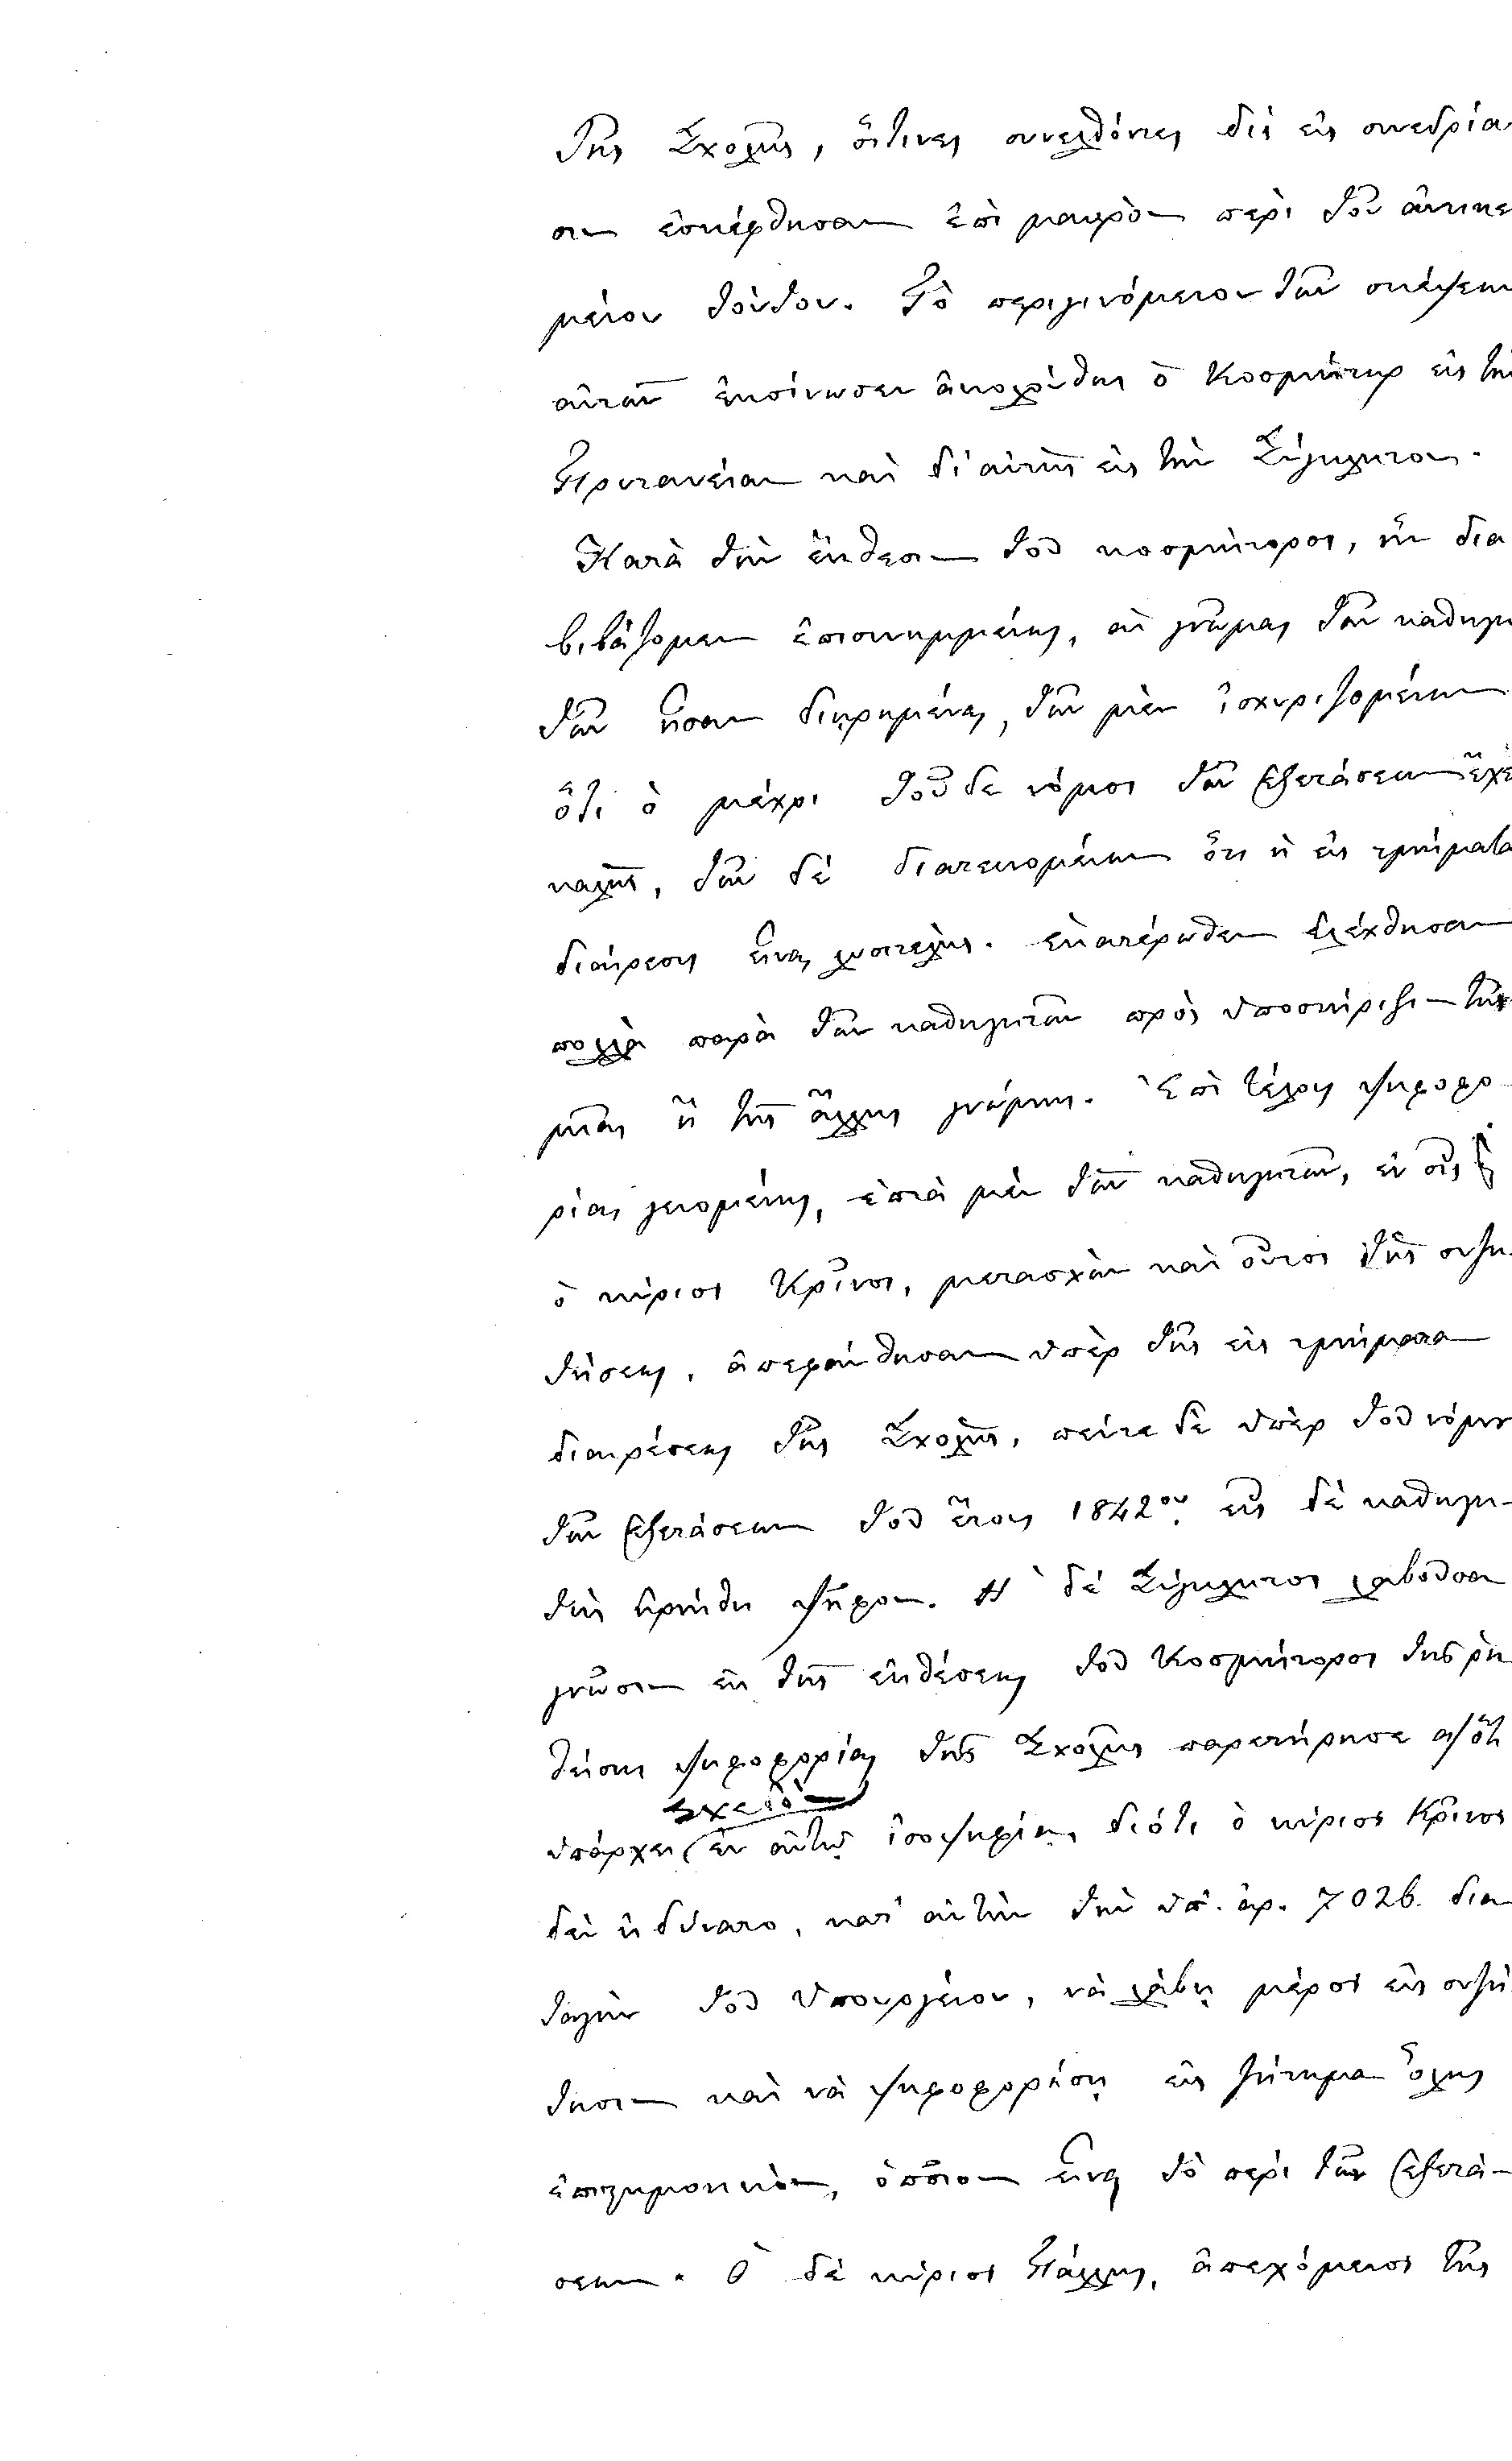 τῆς Σχολῆς, οἵτινες συνελθόντες δὶς εἰς συνεδρία
σιν ἐσκέφθησαν ἐπὶ μακρὸν περὶ τοῦ ἀντικει
μένου τούτου. Τὸ περιγινόμενον τῶν σκέψεων
αὐτῶν ἐκοίνωσεν ἀκολούθως ὁ Κοσμήτωρ εἰς τὴν
Πρυτανείαν καὶ δι' αὐτῆς εἰς τὴν Σύγκλητον.
Κατὰ τὴν ἔκθεσιν τοῦ κοσμήτορος, ἣν δια
βιβάζομεν ἐπισυνημμένως, αἱ γνῶμαι τῶν καθηγη
τῶν ἦσαν διῃρημέναι, τῶν μὲν ἰσχυριζομένων
ὅτι ὁ μέχρι τοῦδε νόμος τῶν ἐξετάσεων ἔχει
καλῶς, τῶν δὲ διατεινομένων ὅτι ἡ εἰς τμήματα
διαίρεσις εἶναι λυσιτελής. ἑκατέρωθεν ἐλέχθησαν
πολλὰ παρὰ τῶν καθηγητῶν πρὸς ὑποστήριξιν τῆς
μιᾶς ἢ τῆς ἄλλης γνώμης. Ἐπὶ τέλους ψηφοφο
ρίας γενομένης, ἑπτὰ μὲν τῶν καθηγητῶν, ἐν οἷς
ὁ κύριος Κρῖνος, μετασχὼν καὶ οὗτος τῆς συζη
τήσεως, ἀπεφάνθησαν ὑπὲρ τῆς εἰς τμήματα
διαιρέσεως τῆς Σχολῆς, πέντε δὲ ὑπὲρ τοῦ νόμου
τῶν ἐξετάσεων τοῦ ἔτους 1842ου, εἷς δὲ καθηγη-
τὴς ἠρνήθη ψῆφον. Ἡ δὲ Σύγκλητος λαβοῦσα
γνῶσιν ἐκ τῆς ἐκθέσεως τοῦ Κοσμήτορος τῆς ῥη
θείσης ψηφοφορίας τῆς Σχολῆς παρετήρησε α) ὅτι
σχεδὸν
ὑπάρχει ἐν αὐτῇ ἰσοψηφία, διότι ὁ κύριος Κρῖνος
δὲν ἠδύνατο, κατ' αὐτὴν τὴν ὑπ'. ἀρ. 7026. δια
ταγὴν τοῦ Ὑπουργείου, νὰ λάβῃ μέρος εἰς συζή
τησιν καὶ νὰ ψηφοφορήσῃ εἰς ζήτημα ὅλως
ἐπιστημονικόν, ὁποῖον εἶναι τὸ περὶ τῶν ἐξετά-
σεων. Ὁ δὲ κύριος Πάλλης, ἀπεχόμενος τῆς